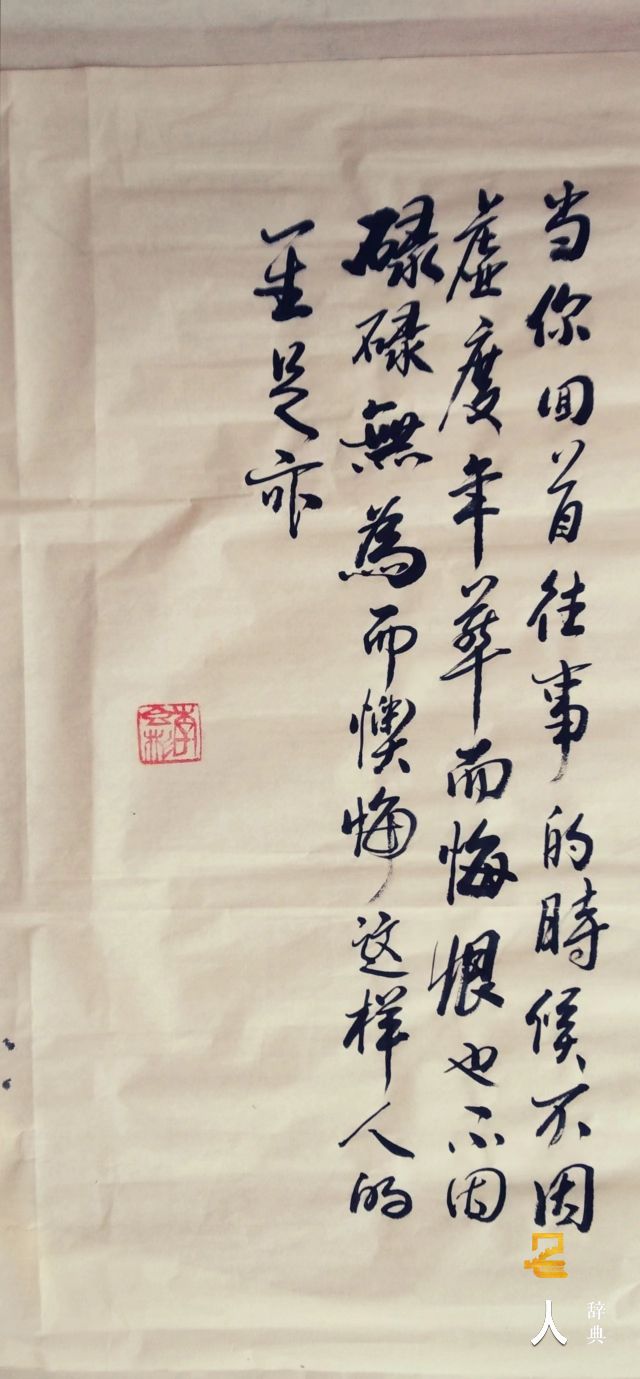 当你回首往事的時候不因
虚度年華而悔恨也不因
碌碌無為而懊悔这样人的
一生足亦
名人
辞典